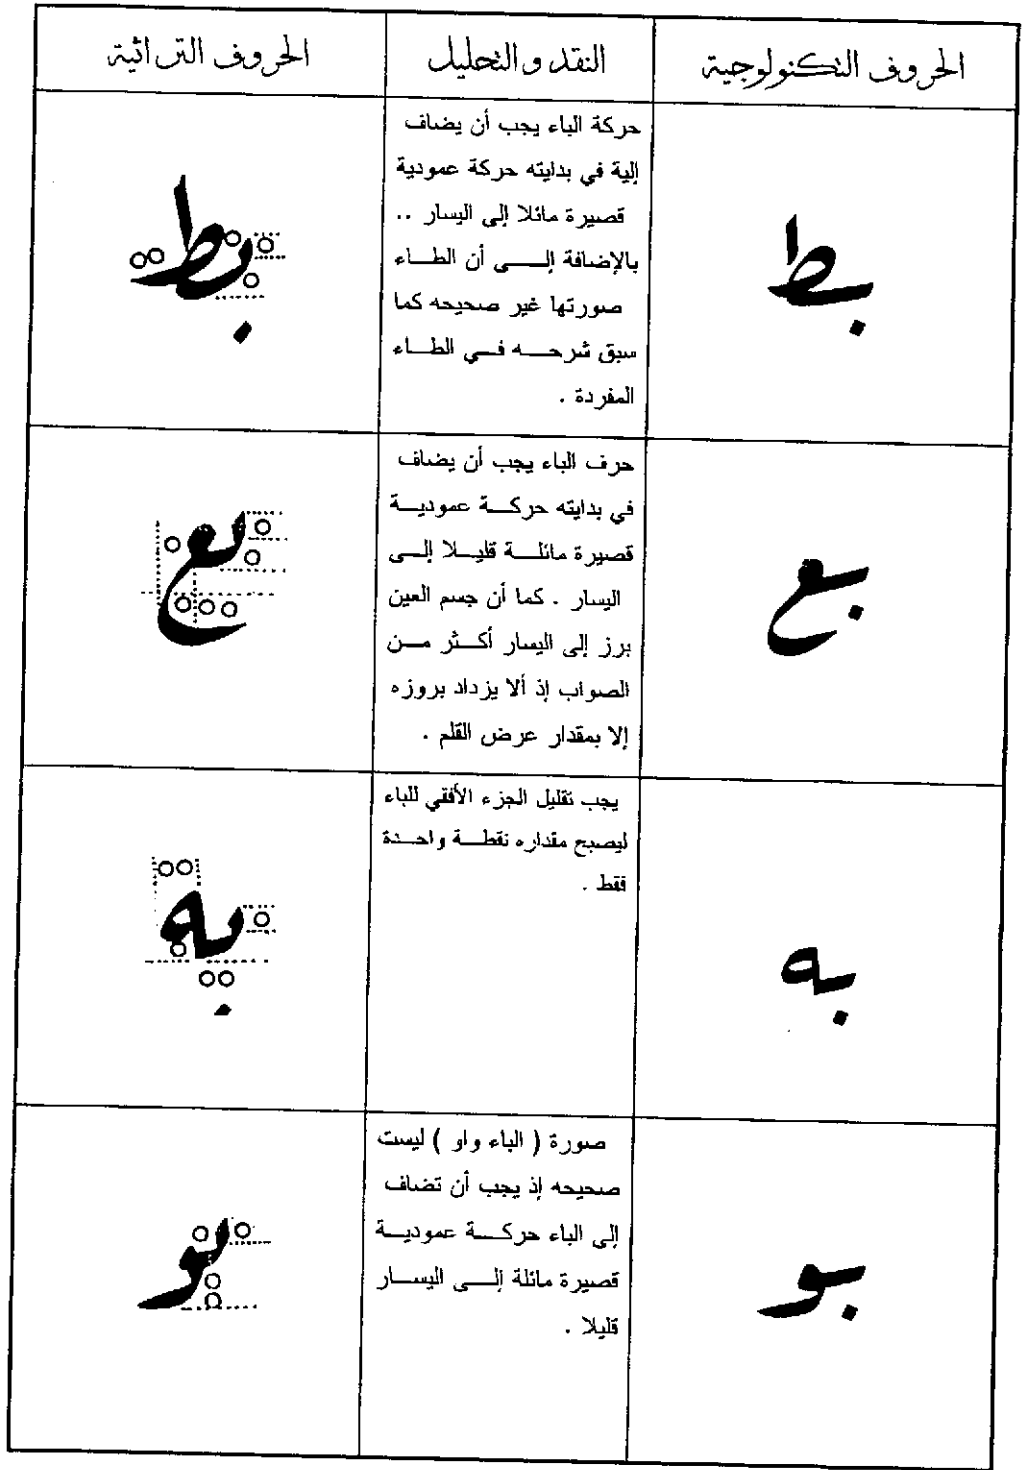 الحروف التكنولوجية
النقد والتحليل
الحروف التراثية
بط
حركة الباء يجب أن يضاف
إلية في بدايته حركة عمودية
قصيرة مائلا إلى اليسار ..
بالإضافة إلى أن الطاء
صورتها غير صحيحه كما
سبق شرحه في الطاء
المفردة .
بط
بع
حرف الباء يجب أن يضاف
في بدايته حركة عمودية
قصيرة مائلة قليلا إلى
اليسار . كما أن جسم العين
برز إلى اليسار أكثر من
الصواب إذ ألا يزداد بروزه
إلا بمقدار عرض القلم .
بع
به
يجب تقليل الجزء الأفقي للباء
ليصبح مقداره نقطة واحدة
فقط .
به
بو
صورة ( الباء واو ) ليست
صحيحه إذ يجب أن تضاف
إلى الباء حركة عمودية
قصيرة مائلة إلى اليسار
قليلا .
بو